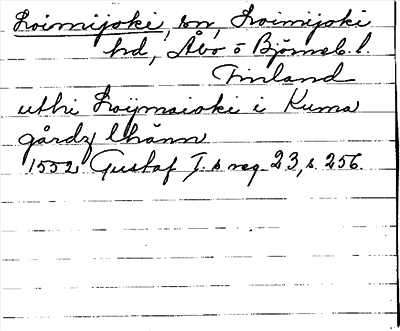 Loimijoki, sn, Loimijoki
hd, Åbo o Björneb. l.
Finland
uthi Loijmaioki i Kuma
gårdz lhänn
1552 Gustaf I:s reg. 23, s. 256.